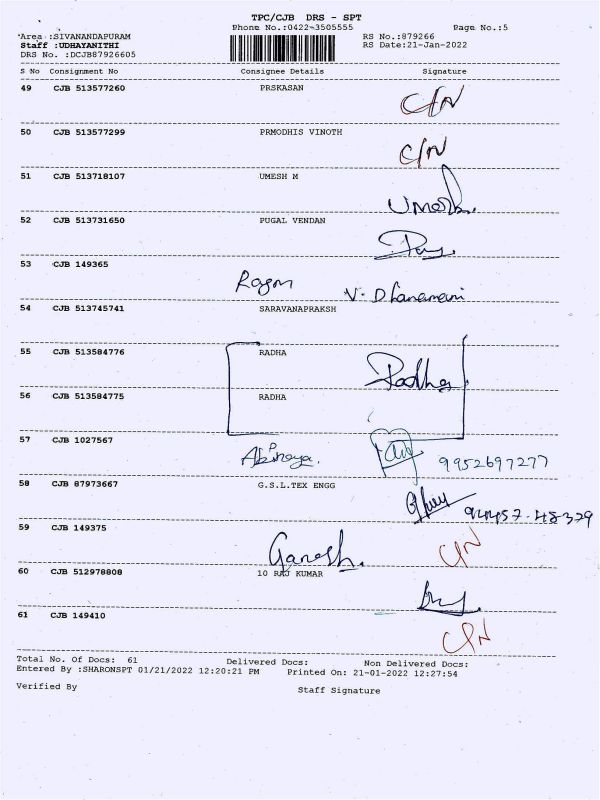 TPC/CJB DRS - SPT
Phone No.:0422-3505555 Page No.:5
Area :SIVANANDAPURAM RS No.:879266
Staff :UDHAYANITHI RS Date:21-Jan-2022
DRS No. :DCJB87926605
S No Consignment No Consignee Details Signature
49 CJB 513577260 PRSKASAN
C/N
50 CJB 513577299 PRMODHIS VINOTH
C/N
51 CJB 513718107 UMESH M
Umesh.
52 CJB 513731650 PUGAL VENDAN
53 CJB 149365
V. Dhanamani
54 CJB 513745741 SARAVANAPRAKSH
55 CJB 513584776 RADHA
Radha
56 CJB 513584775 RADHA
57 CJB 1027567
Abinaya. 9952697277
58 CJB 87973667 G.S.L.TEX ENGG
59 CJB 149375
Ganesh. C/N
60 CJB 512978808 10 RAJ KUMAR
61 CJB 149410
C/N
Total No. Of Docs: 61 Delivered Docs: Non Delivered Docs:
Entered By :SHARONSPT 01/21/2022 12:20:21 PM Printed On: 21-01-2022 12:27:54
Verified By Staff Signature